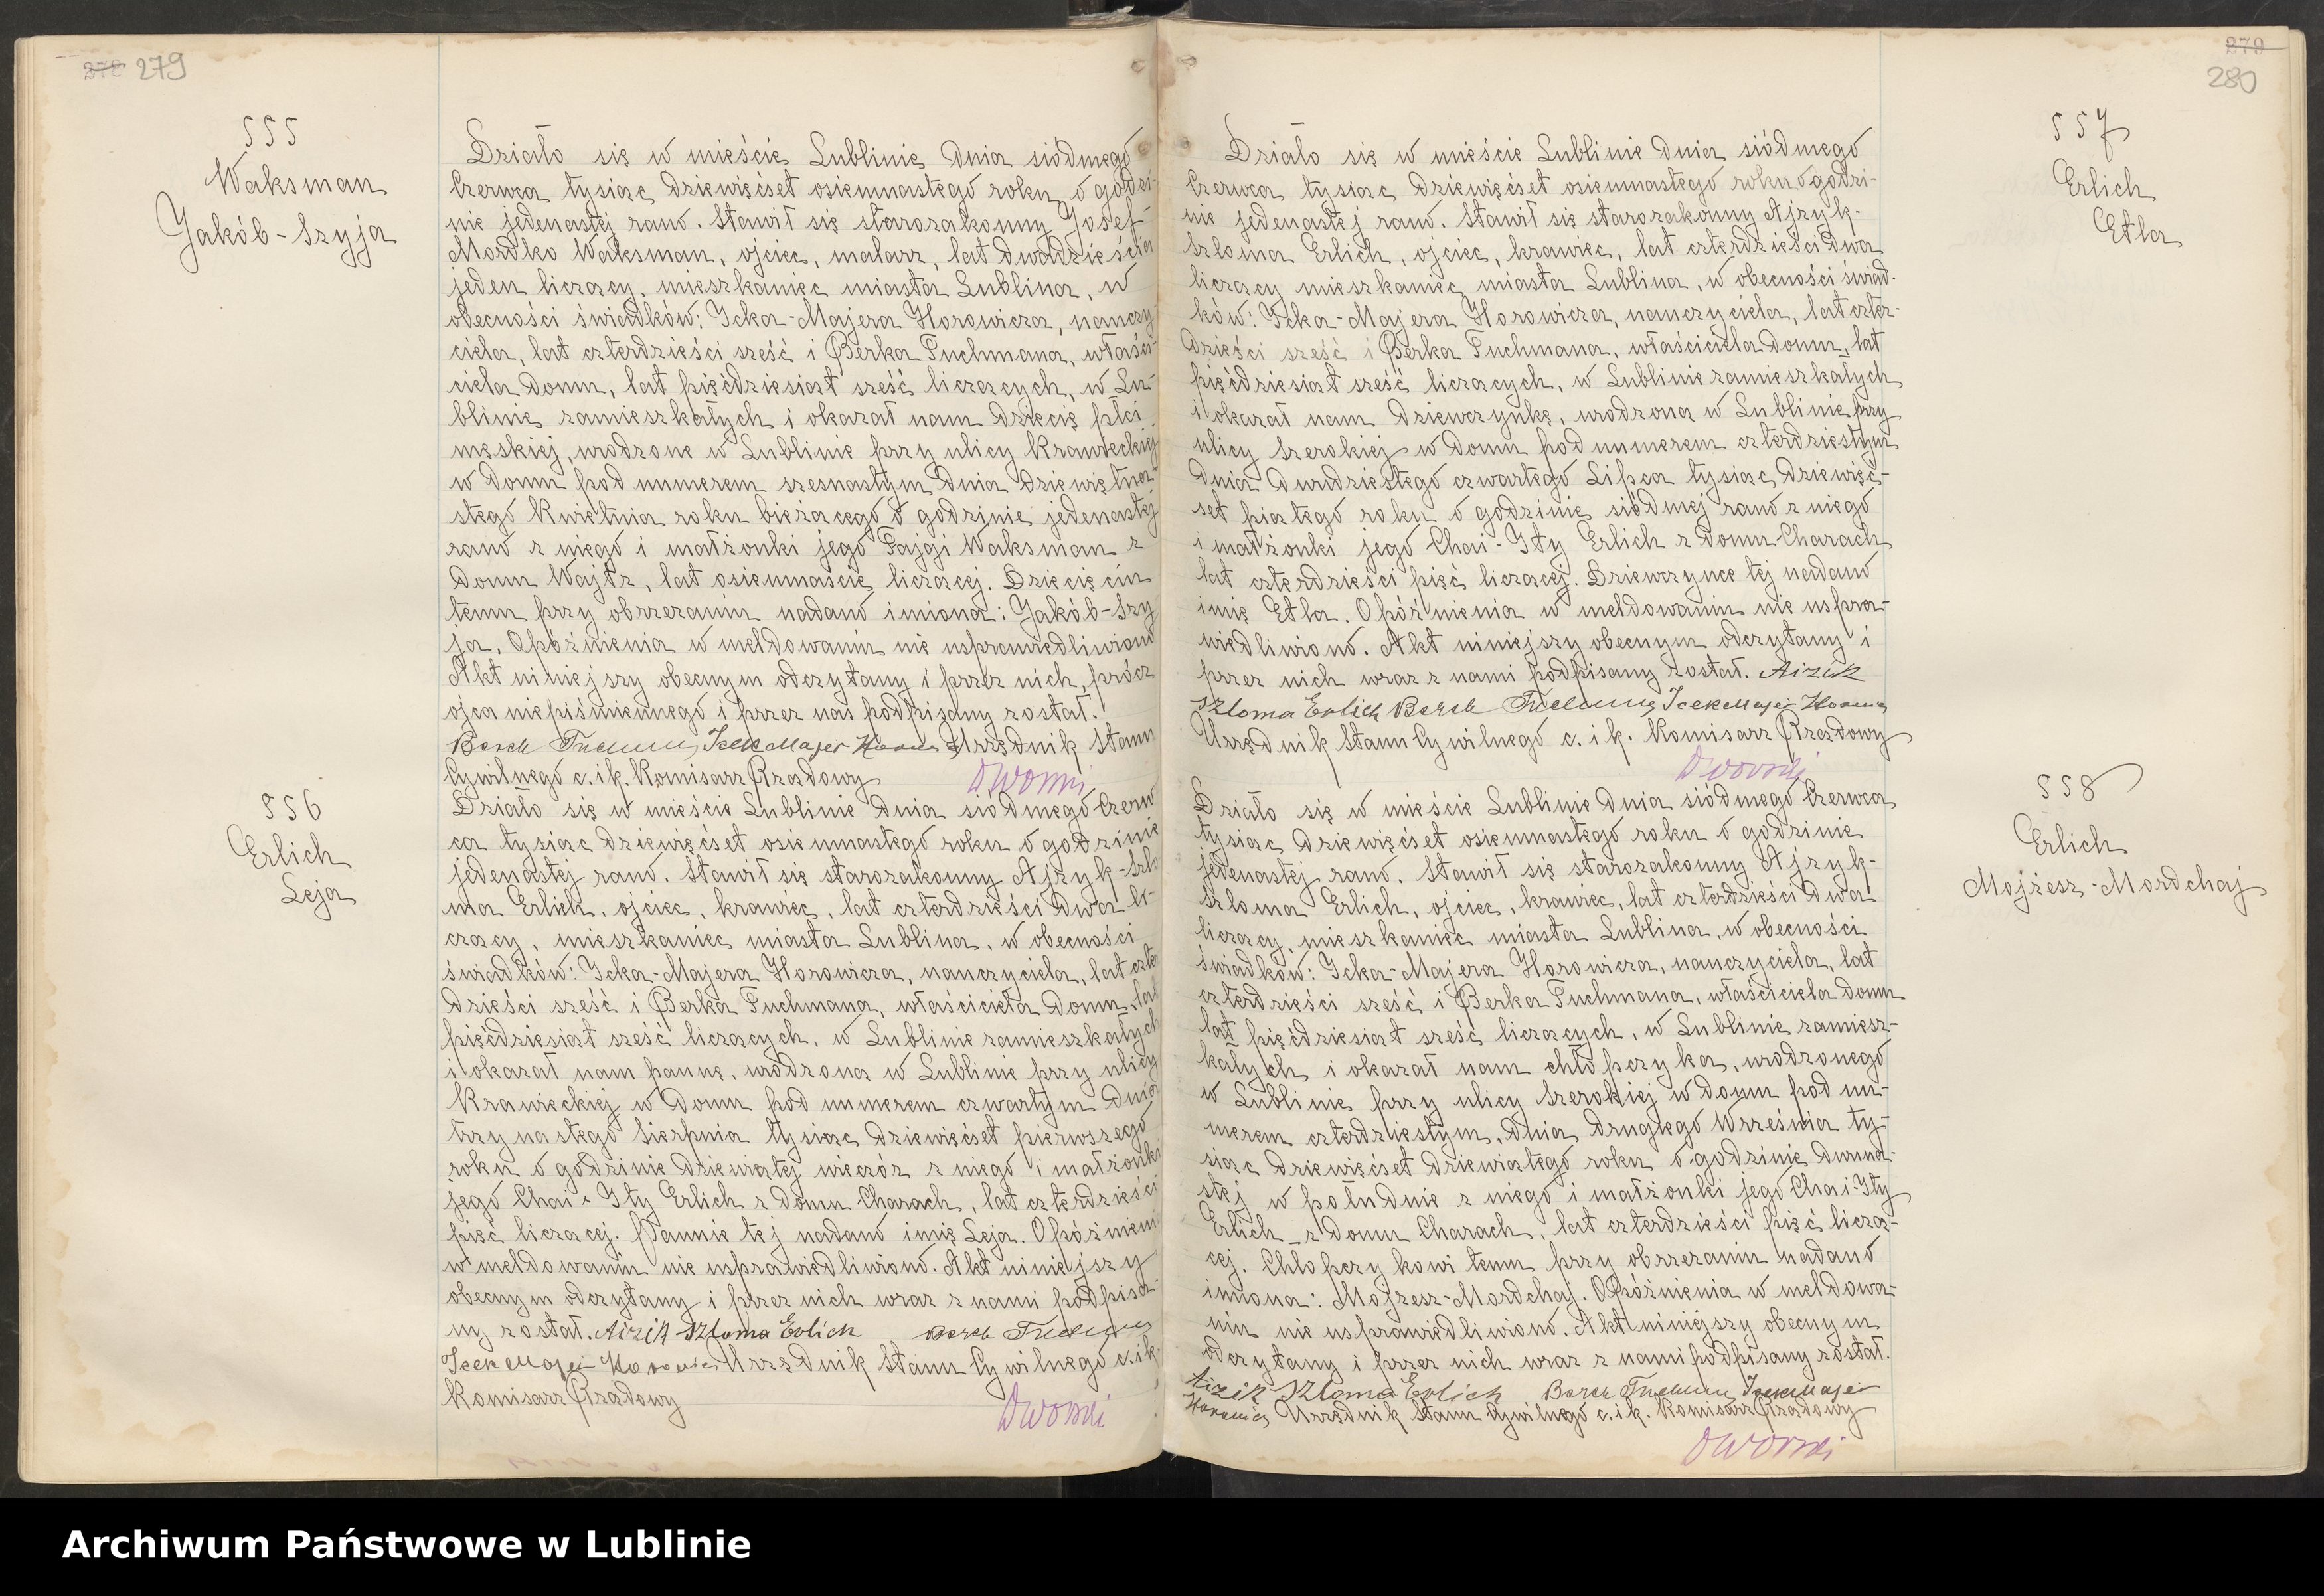 278 279
555
Waksman
Jakób-Szyja
Działo się w mieście Lublinie dnia siódmego
Czerwca tysiąc dziewięćset osiemnastego roku o godzi-
nie jedenastej rano. Stawił się starozakonny Josef-
Mordko Waksman, ojciec, malarz, lat dwadzieścia
jeden liczący, mieszkaniec miasta Lublina, w
obecności świadków: Icka-Majera Horowicza, nauczy
ciela, lat czterdzieści sześć i Berka Fuchmana, właści-
ciela domu, lat pięćdziesiąt sześć liczących, w Lu-
blinie zamieszkałych i okazał nam dziecię płci
męskiej, urodzone w Lublinie przy ulicy Krawieckiej
w domu pod numerem szesnastym dnia dziewiętna-
stego Kwietnia roku bieżącego o godzinie jedenastej
rano z niego i małżonki jego Fajgi Waksman z
domu Wajtz, lat osiemnaście liczącej. Dziecięciu
temu przy obrzezaniu nadano imiona: Jakób-Szy
ja. Opóźnienia w meldowaniu nie usprawiedliwiono
Akt niniejszy obecnym odczytany i przez nich, prócz
ojca niepiśmiennego i przez nas podpisany został.
Berek Fuchman Icek Majer Horowicz Urzędnik Stanu
Cywilnego c. i k. Komisarz Rządowy
Dworski
556
Erlich
Leja
Działo się w mieście Lublinie dnia siódmego Czerw
ca tysiąc dziewięćset osiemnastego roku o godzinie
jedenastej rano. Stawił się starozakonny Ajzyk-Szlo
ma Erlich, ojciec, krawiec, lat czterdzieści dwa li-
czący, mieszkaniec miasta Lublina, w obecności
świadków: Icka-Majera Horowicza, nauczyciela, lat czter
dzieści sześć i Berka Fuchmana, właściciela domu, lat
pięćdziesiąt sześć liczących, w Lublinie zamieszkałych
i okazał nam pannę, urodzoną w Lublinie przy ulicy
Krawieckiej w domu pod numerem czwartym dnia
trzynastego Sierpnia tysiąc dziewięćset pierwszego
roku o godzinie dziewiątej wieczór z niego i małżonki
jego Chai-Ity Erlich z domu Charach, lat czterdzieści
pięć liczącej. Pannie tej nadano imię Leja. Opóźnieni
w meldowaniu nie usprawiedliwiono. Akt niniejszy
obecnym odczytany i przez nich wraz z nami podpisa-
ny został. Aizik Szloma Erlich Berek Fuchman
Icek Majer Horowicz Urzędnik Stanu Cywilnego c. i k.
Komisarz Rządowy
Dworski
279
280
557
Erlich
Etla
Działo się w mieście Lublinie dnia siódmego
Czerwca tysiąc dziewięćset osiemnastego roku o godzi-
nie jedenastej rano. Stawił się starozakonny Ajzyk-
Szloma Erlich, ojciec, krawiec, lat czterdzieści dwa
liczący mieszkaniec miasta Lublina, w obecności świad-
ków: Icka-Majera Horowicza, nauczyciela, lat czter-
dzieści sześć i Berka Fuchmana, właściciela domu, lat
pięćdziesiąt sześć liczących, w Lublinie zamieszkałych
i okazał nam dziewczynkę, urodzoną w Lublinie przy
ulicy Szerokiej w domu pod numerem czterdziestym
dnia dwudziestego czwartego Lipca tysiąc dziewięć-
set piątego roku o godzinie siódmej rano z niego
i małżonki jego Chai-Ity Erlich z domu Charach
lat czterdzieści pięć liczącej. Dziewczynce tej nadano
imię Etla. Opóźnienia w meldowaniu nie uspra-
wiedliwiono. Akt niniejszy obecnym odczytany i
przez nich wraz z nami podpisany został. Aizik
Szloma Erlich Berek Fuchman Icek Majer Horowicz
Urzędnik Stanu Cywilnego c. i k. Komisarz Rządowy
Dworski
558
Erlich
Mojżesz-Mordchaj
Działo się w mieście Lublinie dnia siódmego Czerwca
tysiąc dziewięćset osiemnastego roku o godzinie
jedenastej rano. Stawił się starozakonny Ajzyk-
Szloma Erlich, ojciec, krawiec, lat czterdzieści dwa
liczący, mieszkaniec miasta Lublina, w obecności
świadków: Icka-Majera Horowicza, nauczyciela, lat
czterdzieści sześć i Berka Fuchmana, właściciela domu
lat pięćdziesiąt sześć liczących, w Lublinie zamiesz-
kałych i okazał nam chłopczyka, urodzonego
w Lublinie przy ulicy Szerokiej w domu pod nu-
merem czterdziestym, dnia drugiego Września ty-
siąc dziewięćset dziewiątego roku o godzinie dwuna-
stej w południe z niego i małżonki jego Chai-Ity
Erlich z domu Charach, lat czterdzieści pięć liczą-
cej. Chłopczykowi temu przy obrzezaniu nadano
imiona: Mojżesz-Mordchaj. Opóźnienia w meldowa-
niu nie usprawiedliwiono. Akt niniejszy obecnym
odczytany i przez nich wraz z nami podpisany został.
Aizik Szloma Erlich Berek Fuchman Icek Majer
Horowicz Urzędnik Stanu Cywilnego c. i k. Komisarz Rządowy
Dworski
Archiwum Państwowe w Lublinie